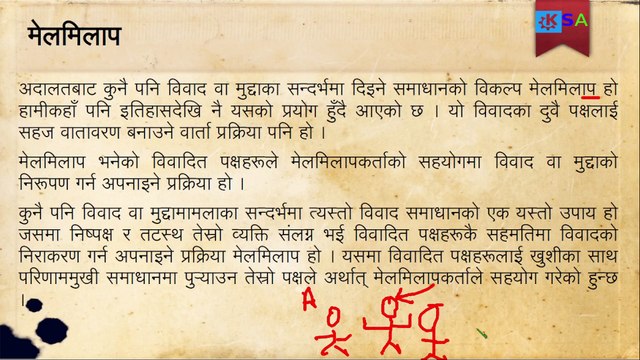 मेलमिलाप
KSA
अदालतबाट कुनै पनि विवाद वा मुद्दाका सन्दर्भमा दिइने समाधानको विकल्प मेलमिलाप हो
हामीकहाँ पनि इतिहासदेखि नै यसको प्रयोग हुँदै आएको छ । यो विवादका दुवै पक्षलाई
सहज वातावरण बनाउने वार्ता प्रक्रिया पनि हो ।
मेलमिलाप भनेको विवादित पक्षहरूले मेलमिलापकर्ताको सहयोगमा विवाद वा मुद्दाको
निरूपण गर्न अपनाइने प्रक्रिया हो ।
कुनै पनि विवाद वा मुद्दामामलाका सन्दर्भमा त्यस्तो विवाद समाधानको एक यस्तो उपाय हो
जसमा निष्पक्ष र तटस्थ तेस्रो व्यक्ति संलग्न भई विवादित पक्षहरूकै सहमतिमा विवादको
निराकरण गर्न अपनाइने प्रक्रिया मेलमिलाप हो । यसमा विवादित पक्षहरूलाई खुशीका साथ
परिणाममुखी समाधानमा पुऱ्याउन तेस्रो पक्षले अर्थात् मेलमिलापकर्ताले सहयोग गरेको हुन्छ
।
A